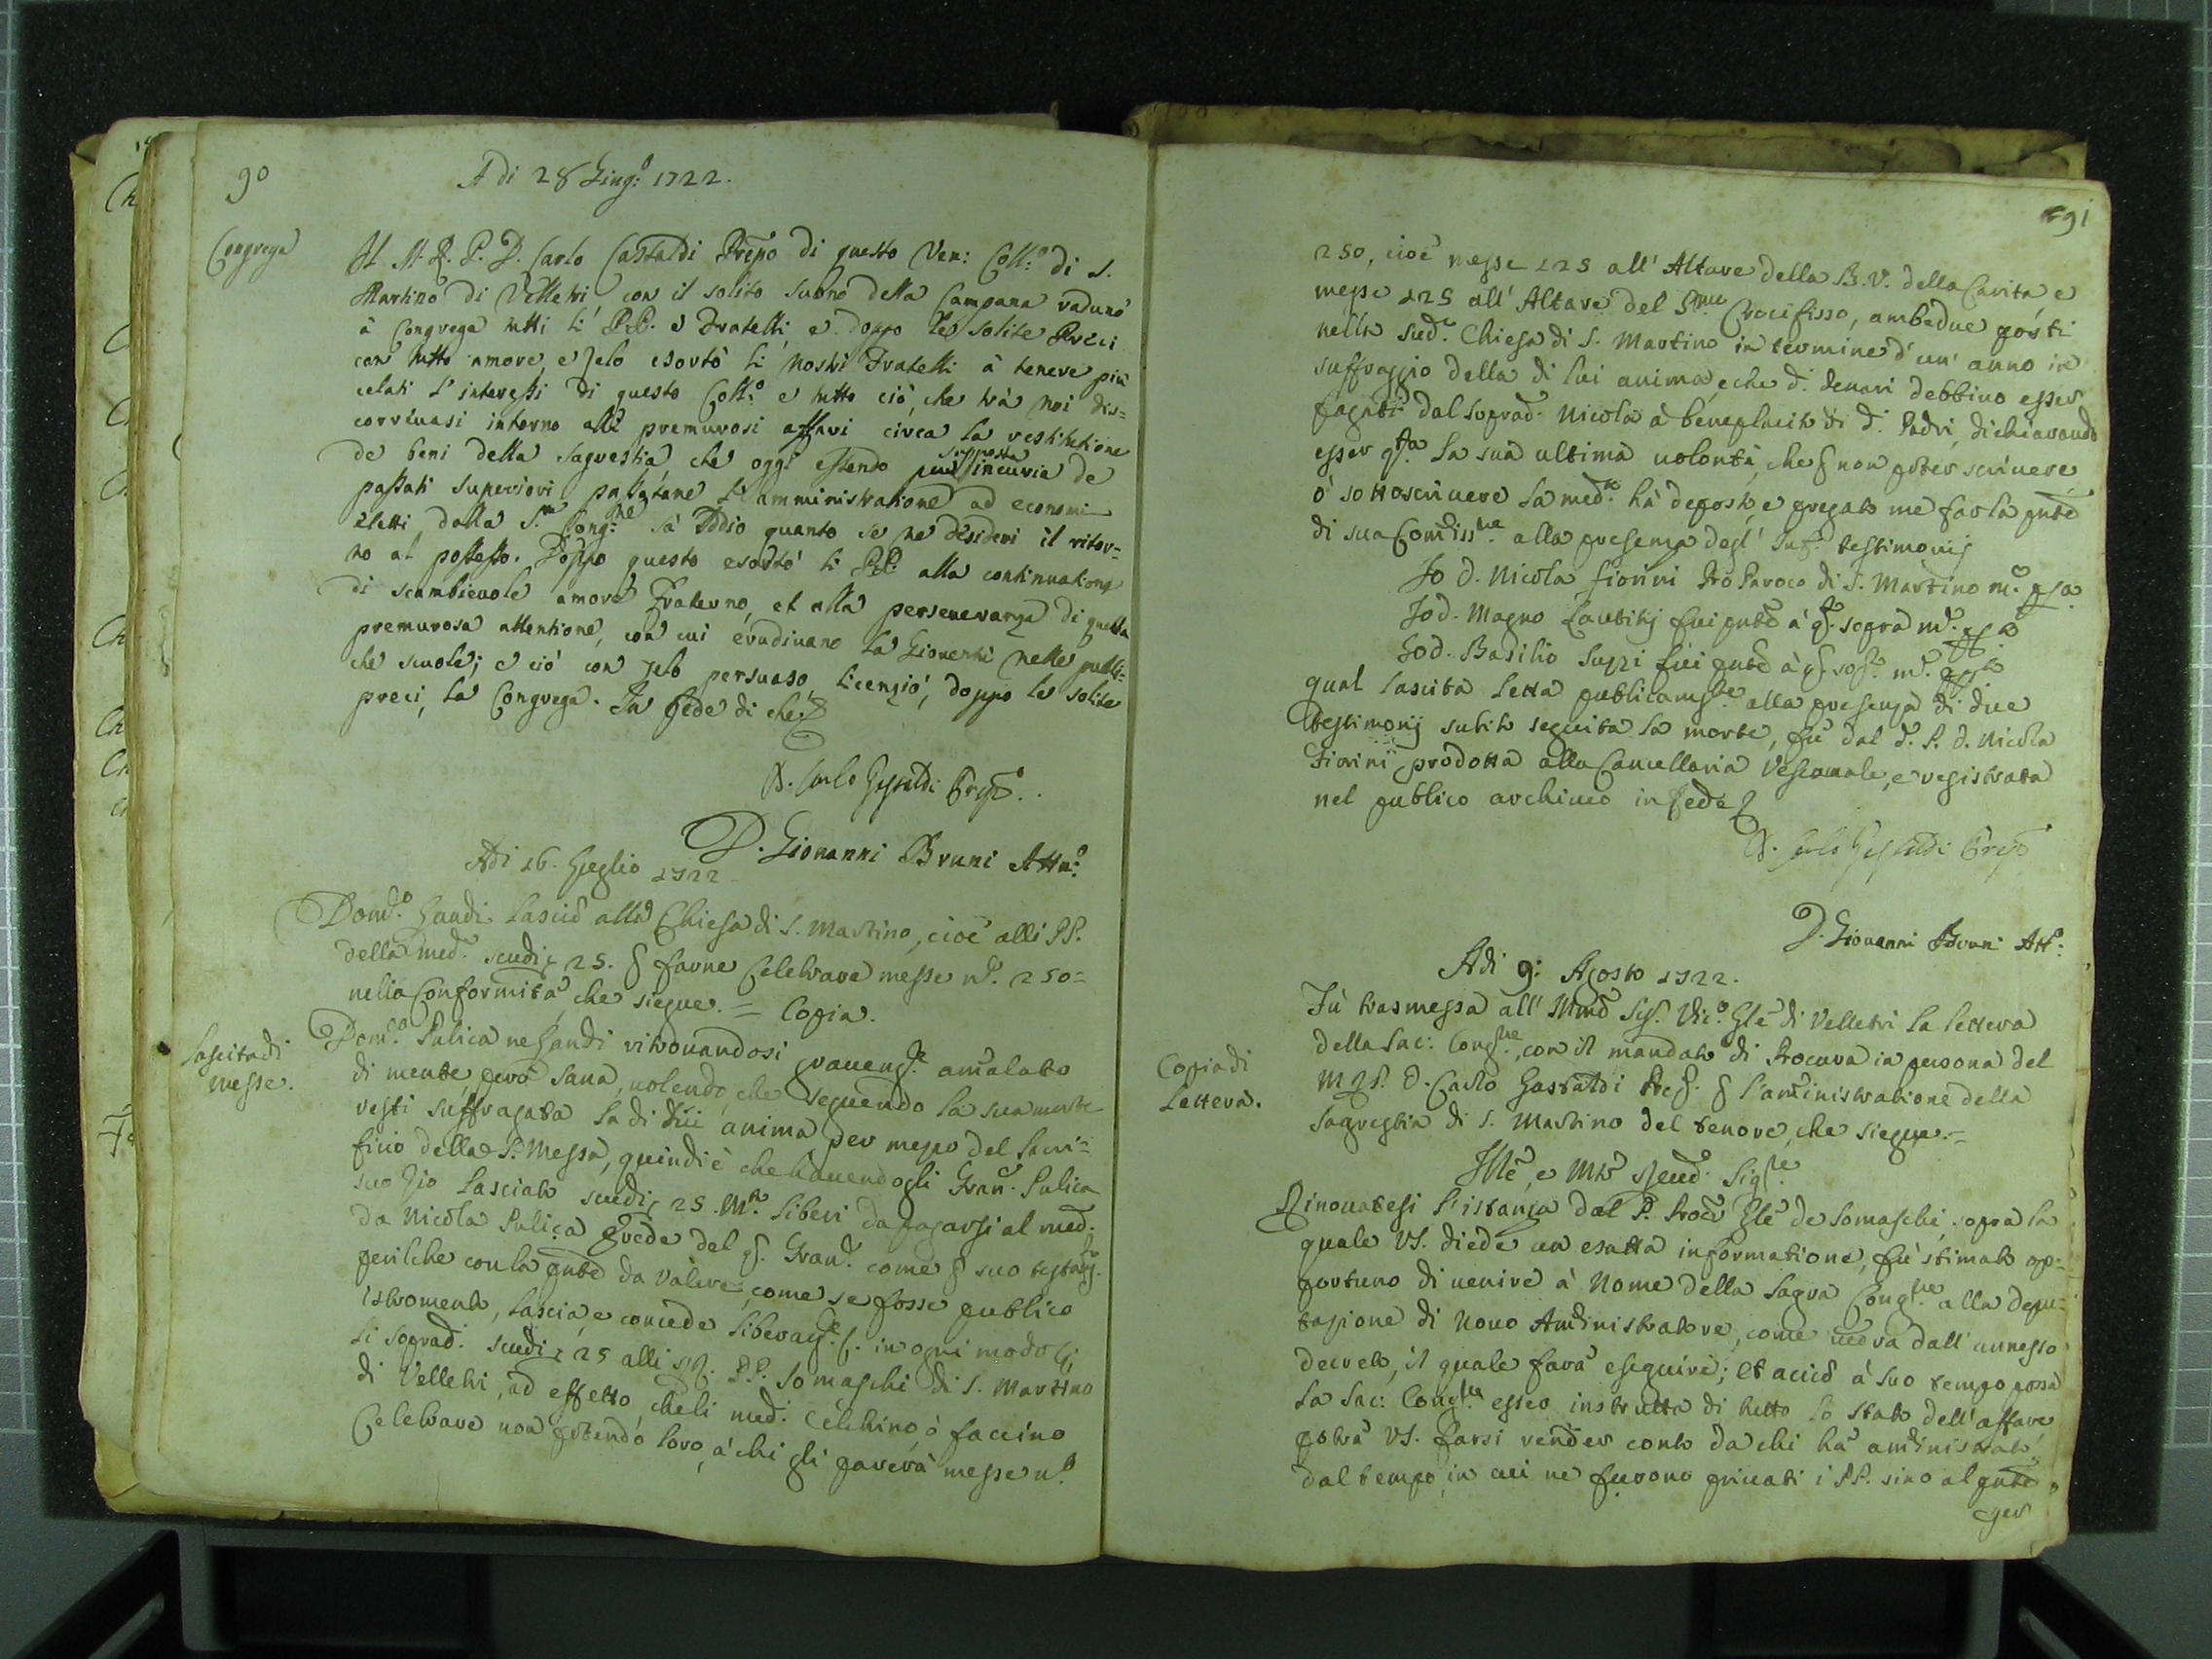 90
A di 28 Giug:º 1722.
Congrega
Il M. R. P. D. Carlo Gastaldi Prepo di questo Ven: Coll:º di S.
Martino di Velletri con il solito suono della Campana radunò
à Congrega tutti li PP. e Fratelli, e doppo le solite Preci
con tutto amore, e zelo esortò li nostri Fratelli à tenere più
celati l'interessi di questo Coll:º e tutto ciò, che trà noi dis=
corrivasi intorno alli premurosi affari circa la restitutione
de beni della sagrestia, che oggi essendo supposta incuria de
passati superiori passatane l'amministratione ad economi
eletti dalla S.ra Cong:ne sà Iddio quanto se ne desideri il ritor=
no al possesso. Doppo questo esortò li PP. alla continuatione
di scambievole amore Fraterno, et alla perseveranza di quella
premurosa attentione, con cui erudivano la Gioventù nelle publi=
che scuole; e ciò con zelo persuaso, licenziò, doppo le solite
preci, la Congrega. In fede di che
D. Carlo Gastaldi Prepº.
D. Giovanni Bruni Attu:º
Adi 16. Luglio 1722
Domº. Gaudi lasciò alla Chiesa di S. Martino, cioè alli PP.
della med. scudi 25. p farne celebrare messe nº. 250=
nella Conformità, che siegue. = Copia.
Lascita di
messe.
Domca. Pulica ne Gaudi ritrovandosi gravemte. amalata
di mente però sana, volendo, che seguendo la sua morte
resti suffragata la di lui anima per mezzo del Sacri=
ficio della S. Messa, quindi è che havendogli Fran. Pulica
suo Zio lasciato scudi 25. mta. liberi da pagarsi al med.
da Nicola Pulica Erede del qº. Fran. come p suo testamto.
perilche con la pnte da valere, come se fosse publico
istromento, lascia, e concede liberamte. in ogni modo
li soprad. scudi 25 alli PP. Somaschi di S. Martino
di Velletri, ad effetto che li med. celebrino, ò faccino
celebrare non potendo loro, a chi gli parerà messe nº.
91
250, cioè messe 125 all'Altare della B. V. della Carità e
messe 125 all'Altare del Smo Crocifisso, ambedue posti
nella sud. Chiesa di S. Martino in termine d'un anno in
suffraggio della di lui anima, e che d. denari debbino esser
pagati dal soprad. Nicola à beneplacito di d. Padri, dichiarando
esser qta la sua ultima volontà, che p non poter scrivere,
ò sottoscrivere la meda hà deposto, e pregato me far la pnte
di sua Comissne. alla presenza degl'inf. testimonij
Io D. Nicola Fiorini Pro Paroco di S. Martino mº. ppa
Io D. Magno fui pnte à qº. sopra mº. ppa
Io D. Basilio fui pnte à qº. sopª. mº. ppa
qual lascita letta publicamte. alla presenza di due
testimonij subito seguita la morte, fù dal d. P. D. Nicola
Fiorini prodotta alla Cancellaria Vescovale, e registrata
nel publico archivio in fede
D. Carlo Gastaldi Prepº
D. Giovanni Bruni Attº:
Adi 9: Agosto 1722.
Copia di
Lettera.
Fù trasmessa all'Illmo Sig. Vicº. Gle di Velletri la lettera
della Sac: Congne., con il mandato di Procura in persona del
M R P. D. Carlo Gastaldi Prep. p l'aministratione della
Sagrestia di S. Martino del tenore, che siegue.=
Ille, e Mto Rend. Sigre.
Rinovatesi l'istanza dal P. Procr Gle de Somaschi, sopra la
quale VS. diede un esatta informatione, fù stimato op=
portuno di venire à nome della Sagra Congne. alla depu=
tazione di novo Aministratore, come vedrà dall'annesso
decreto, il quale farà eseguire; et acciò à suo tempo possa
la Sac: Congne. esser instrutta di tutto lo stato dell'affare
potrà VS. farsi render conto da chi hà aministrato
dal tempo, in cui ne furono privati i PP. sino al pnte,
per